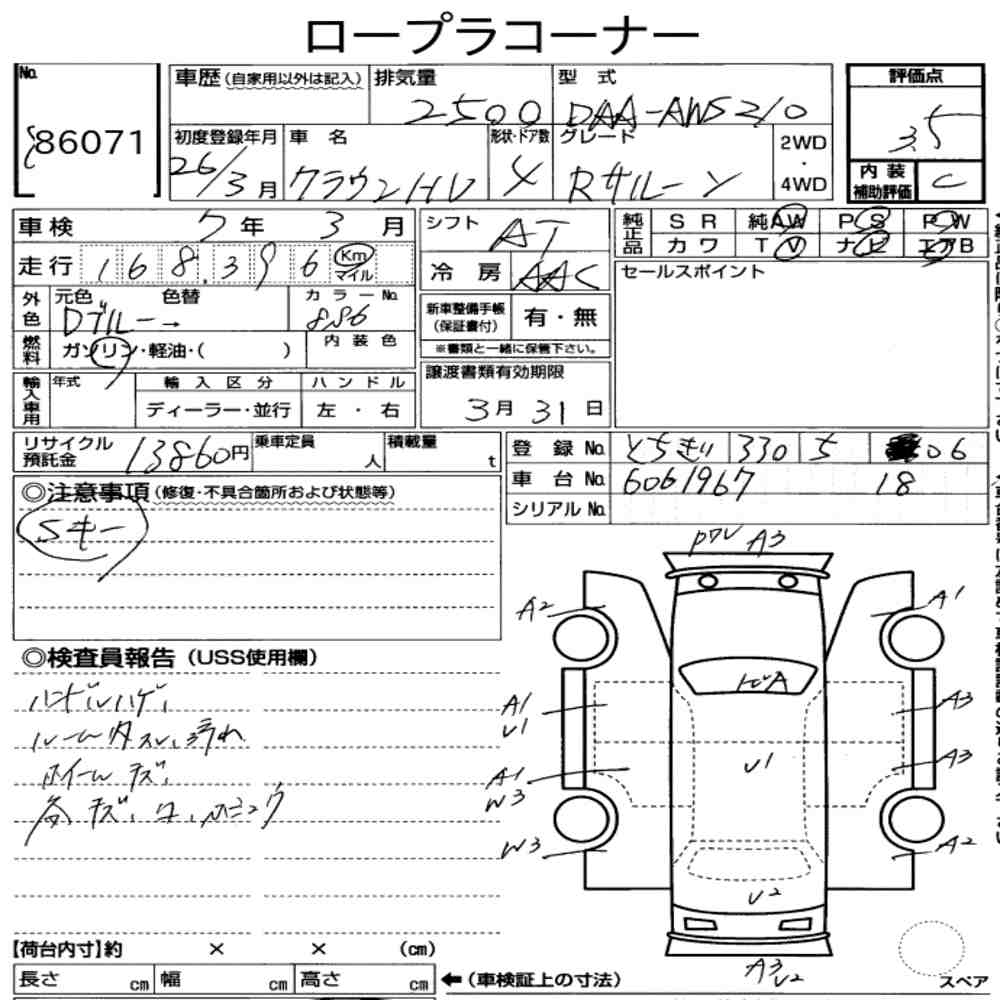 ロープラコーナー
No. 86071
車歴(自家用以外は記入) 排気量 型式 評価点
2500 DAA-AWS210 3.5
初度登録年月 車名 形状・ドア数 グレード 2WD・4WD 内装補助評価
26/3月 クラウンHV 4 Rサルーン C
車検 7年 3月 シフト AT 純正品 SR 純AW PS PW
カワ TV ナビ エアB
走行 168,396 Km マイル 冷房 AAC セールスポイント
外色 元色 色替 カラーNo.
Dブルー→ 886
新車整備手帳(保証書付) 有・無
※書類と一緒に保管下さい。
燃料 ガソリン・軽油・( ) 内装色
輸入車用 年式 輸入区分 ハンドル
ディーラー・並行 左・右
譲渡書類有効期限
3月31日
リサイクル預託金 13860円 乗車定員 人 積載量 t
登録No. とちぎ 330 5 06
車台No. 6061967 18
シリアルNo.
◎注意事項(修復・不具合箇所および状態等)
Sキー
A3
A2 A1
◎検査員報告(USS使用欄)
ハンドルハゲ、
ルーム内スレ、汚れ
ホイールキズ、
A1 U1 A3
U1
A1 W3 A3
W3 A2
U2
A3 U2
【荷台内寸】約 × × (cm)
長さ cm 幅 cm 高さ cm ←(車検証上の寸法) スペア